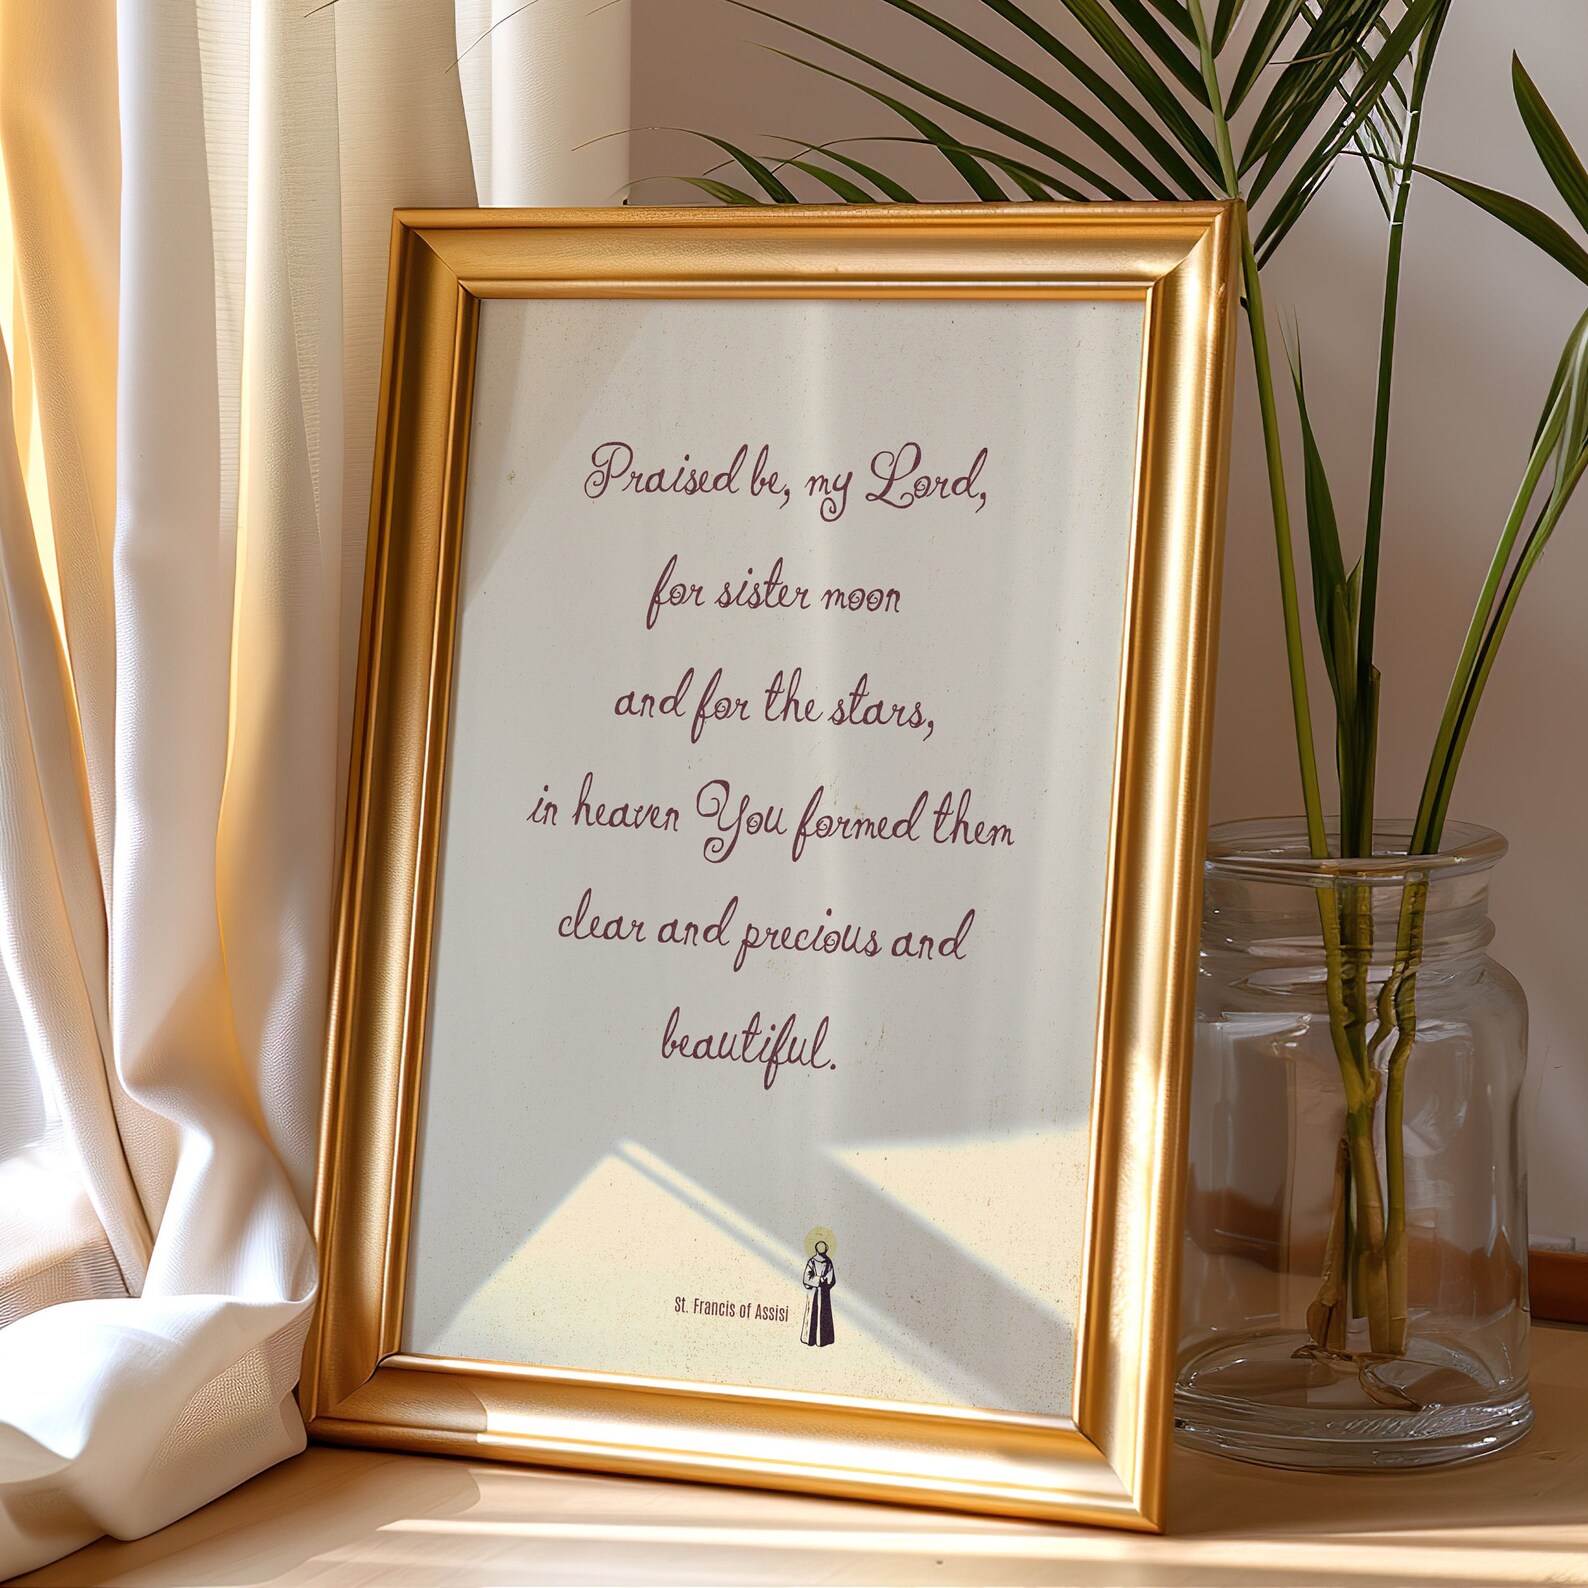 Praised be, my Lord,
for sister moon
and for the stars,
in heaven You formed them
clear and precious and
beautiful.
St. Francis of Assisi